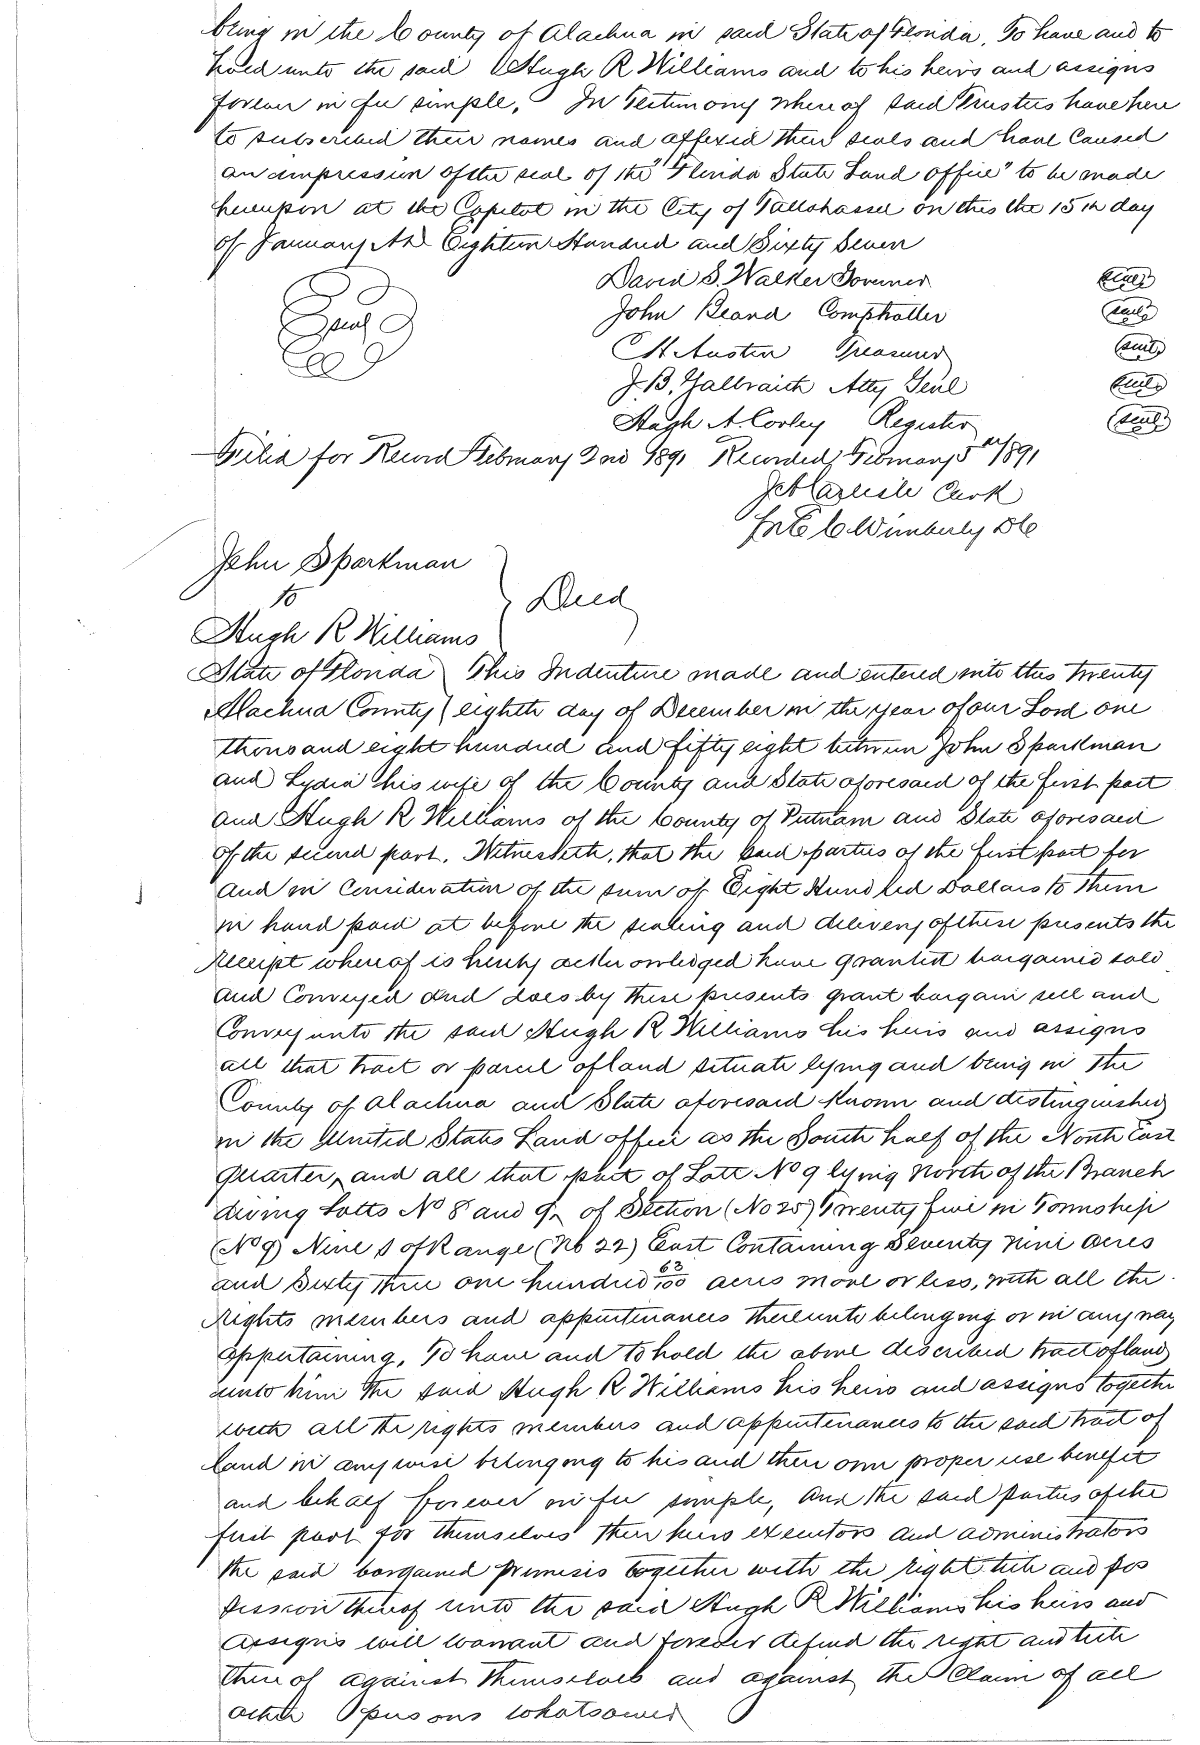 being in the County of Alachua in said State of Florida, To have and to
hold unto the said Hugh R Williams and to his heirs and assigns
forever in fee simple, In Testimony where of said Trustees have here
to subscribed their names and affixed their seals and have caused
an impression of the seal of the "Florida State Land office" to be made
hereupon at the Capitol in the City of Tallahassee on this the 15th day
of January AD Eighteen Hundred and Sixty Seven
David S. Walker Governor seal
John Beard Comptroller seal
Seal
C H Austin Treasurer seal
J. B. Galbraith Atty Genl seal
Hugh A. Corley Register seal
Filed for Record February 2nd 1891 Recorded February 5th 1891
J A Carlisle Clerk
per E C Wimberly DC
John Sparkman
to Deed
Hugh R Williams
State of Florida This Indenture made and entered into this Twenty
Alachua County eighth day of December in the year of our Lord one
thousand eight hundred and fifty eight between John Sparkman
and Lydia his wife of the County and State aforesaid of the first part
and Hugh R Williams of the County of Putnam and State aforesaid
of the second part. Witnesseth, that the said parties of the first part for
and in Consideration of the sum of Eight Hundred Dollars to them
in hand paid at before the sealing and delivery of these presents the
Receipt whereof is hereby acknowledged have granted bargained sold
and Conveyed and does by these presents grant bargain sell and
Convey unto the said Hugh R Williams his heirs and assigns
all that tract or parcel of land situate lying and being in the
County of Alachua and State aforesaid Known and distinguished
in the United States Land office as the South half of the North East
Quarter, and all that part of Lott No 9 lying North of the Branch
diving Lotts No 8 and 9, of Section (No 25) Twenty five in Township
(No 9) Nine S of Range (No 22) East Containing Seventy nine acres
and Sixty three one hundred 63/100 acres more or less, with all the
rights members and appurtenances thereunto belonging or in any way
appertaining, To have and to hold the above described tract of land
unto him the said Hugh R Williams his heirs and assigns together
with all the rights members and appurtenances to the said tract of
land in anywise belonging to his and their own proper use benefit
and behalf forever in fee simple, And the said parties of the
first part for themselves their heirs executors and administrators
the said bargained premises together with the right title and pos
session thereof unto the said Hugh R Williams his heirs and
assigns will warrant and forever defend the right and title
there of against themselves and against the Claim of all
other persons whatsoever